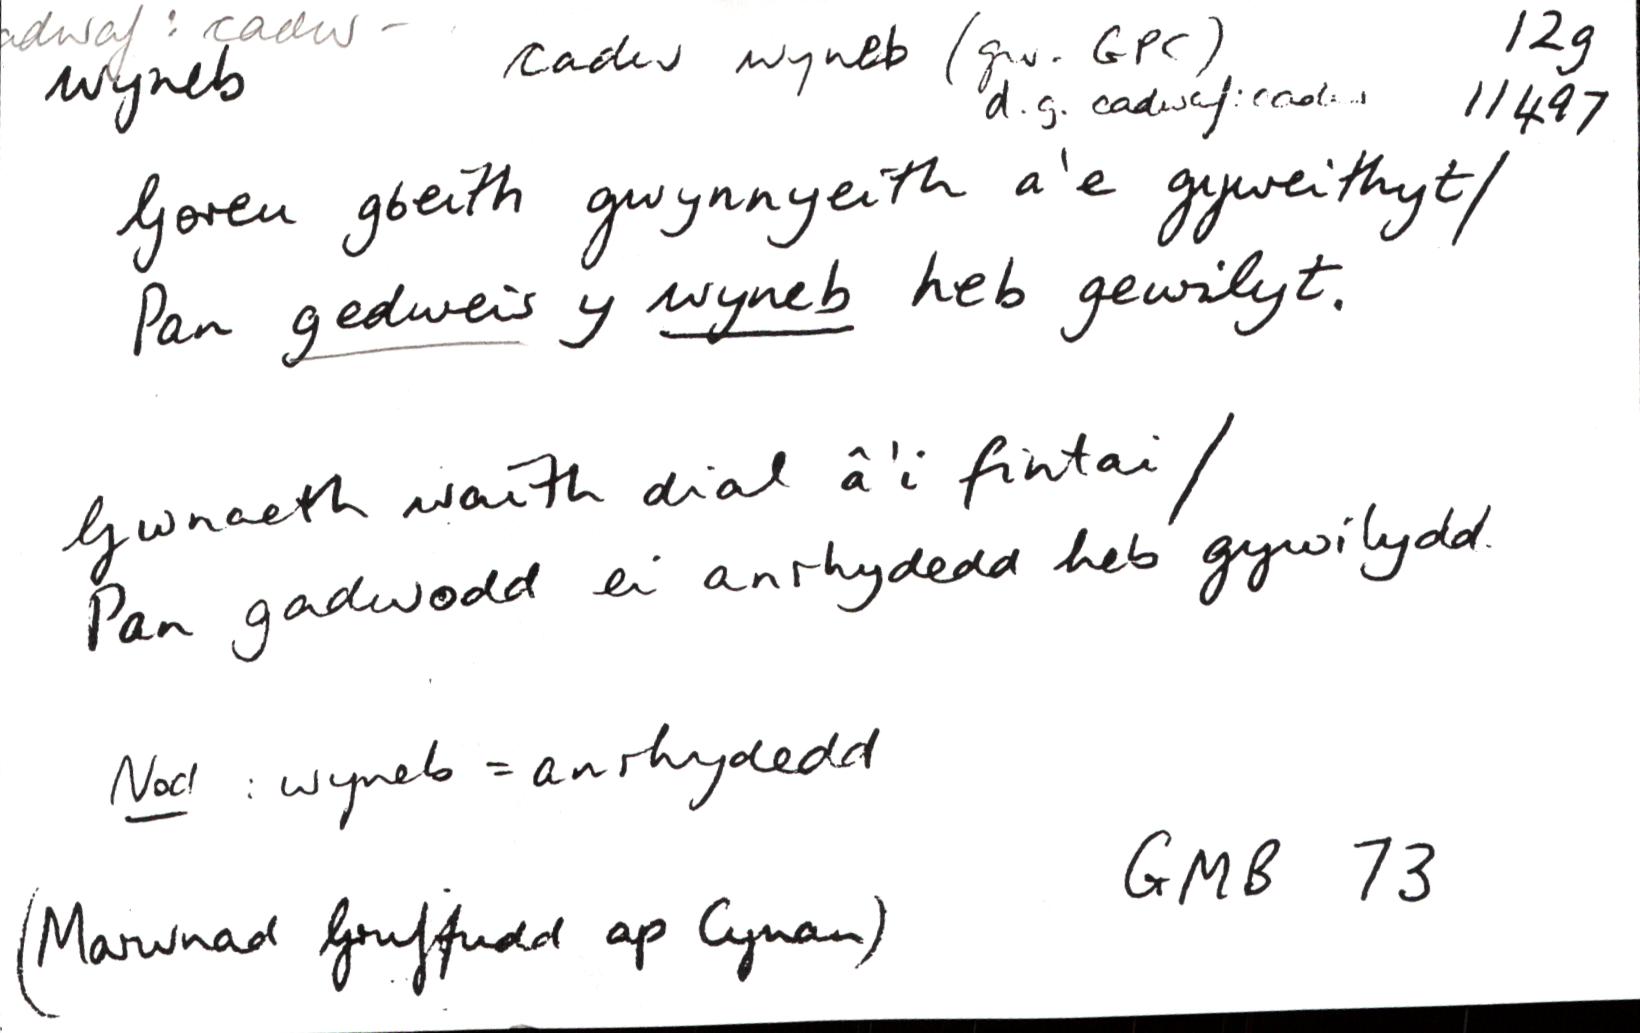 adwaf : cadw -
wyneb cadw wyneb (gw. GPC) 12g
d.g. cadwaf: cadw 11497
Goreu gỽeith gwynnyeith a'e gyweithyt/
Pan gedweis y wyneb heb gewilyt.
Gwnaeth waith dial â'i fintai/
Pan gadwodd ei anrhydedd heb gywilydd.
Nod : wyneb = anrhydedd
GMB 73
(Marwnad Gruffudd ap Cynan)